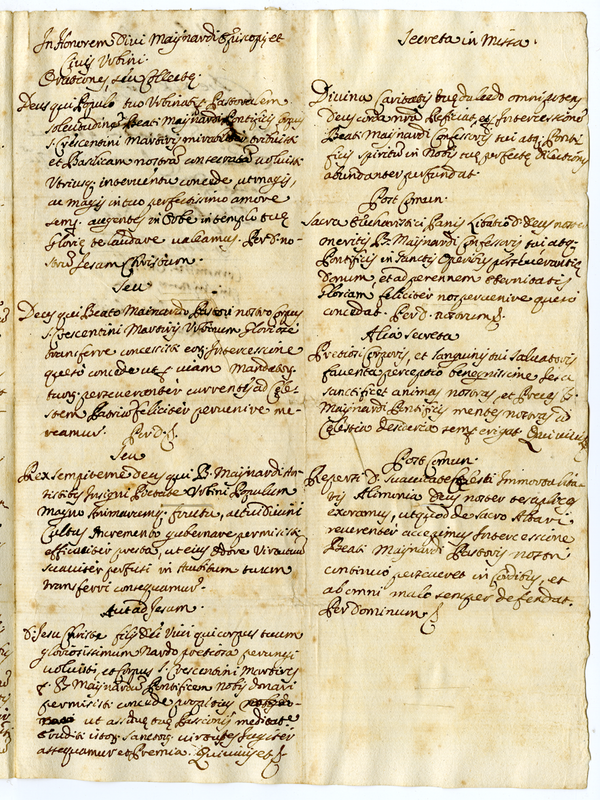 In Honorem Divi Maynardi Episcopi, et
Civis Urbini.
Orationes, seu Collectę.
Deus qui Populo tuo Urbinati Pastorem
Beati Maynardi Pontificis Corpus
S. Crescentini Martiris tribuisti
et Basilicam nostram consecrari voluisti
Utriusq; interventu concede, ut magis,
ac magis in tuo perfectissimo amore
semp. augentes in Orbe in templo tuę
Glorię te laudare valeamus. Per D. no-
strum Jesum Christum.
Seu
Deus qui Beato Mainardo Pastori nostro Corpus
S. Crescentini Martiris Urbinum
transferre concessisti eor. Intercessione
quesò concede ut viam Mandator.
tuor. perseveranter currentes ad Cęle-
stem Patriam feliciter pervenire me-
reamur. Per D.
Seu
Rex sempiterne deus qui B. Maynardi An-
tistitis Insigni Pietate Urbini Populum
magno Animarum fructu, ac divini
Cultus Incremento gubernare permisisti
efficaciter presta, ut eius
suaviter perfusi in tuum
transferri consequamur.
Aut ad Jesum.
D. Jesu Christe fili Dei Vivi qui corpus tuum
gloriosissimum nardo pretiosa perungi
voluisti, et Corpus S. Crescentini Martires
p. B. Maynardum Pontificem nobis donari
permisisti concede propitius
ut assiduę tuę Passionis meditatione
eruditi Sanctor. virtutes jugiter
assequamur et Premia. Qui vivis et
Secreta in Missa.
Divina Caritatis tuę dulcedo omnipotens
Deus corda nrā reficiat, et Intercessione
Beati Maynardi Confessoris tui atq; Ponti
ficis spiritum in nobis tuę perfectę dilectionis
abundanter perfundat.
Post Comun.
Sacra Eucharistici Panis Libatio D. Deus noster
meritis B. Maynardi Confessoris tui atq;
Pontificis in Sanctis Operibus perseverantię
Donum, et ad perennem eternitatis
Gloriam feliciter nos pervenire quesò
concedat. Per D. nostrum
Alia Secreta
Pretiosi Corporis, et Sanguinis tui Salvatoris
faventa perceptio benignissime Jesu
sanctificet animas nostras, et Preces B.
Maynardi Pontificis mentes nostras ad
Cęlestia desideria semp. erigat. Qui vivis
Post Comun.
Repleti D. suavitate Cęlesti Immortalita-
tis Alimonia Deus noster te supplices
exoramus, ut quod de sacro Altari
reverenter accepimus Intercessione
Beati Maynardi Pastoris nostri
continuò perseveret in Cordibus, et
ab omni malo semper defendat.
Per Dominum